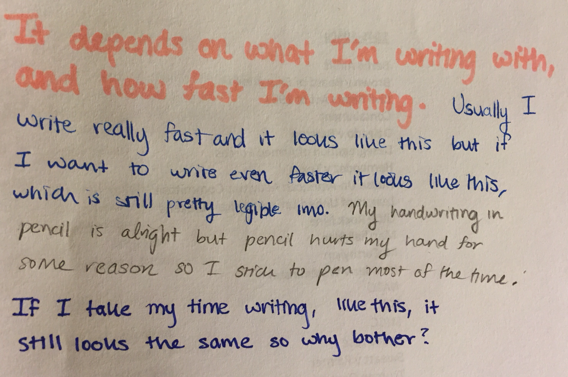 It depends on what I'm writing with,
and how fast I'm writing. Usually I
write really fast and it looks like this but if
I want to write even faster it looks like this,
which is still pretty legible imo. My handwriting in
pencil is alright but pencil hurts my hand for
some reason so I stick to pen most of the time.
If I take my time writing, like this, it
still looks the same so why bother?